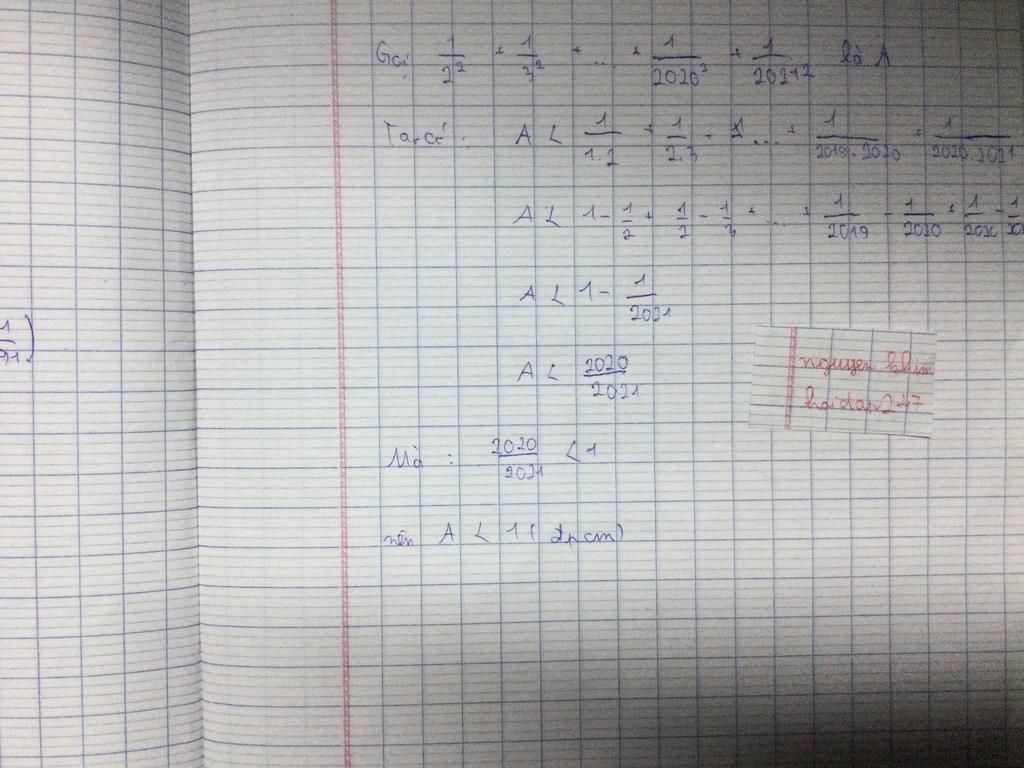 Gọi 1/2² + 1/3² + ... + 1/2020² + 1/2021² là A
Ta có: A < 1/1.2 + 1/2.3 + ... + 1/2019.2020 + 1/2020.2021
A < 1 - 1/2 + 1/2 - 1/3 + ... + 1/2019 - 1/2020 + 1/2020 - 1/202
A < 1 - 1/2021
A < 2020/2021
Mà : 2020/2021 < 1
nên A < 1 (đpcm)
nguyen
hoidap247